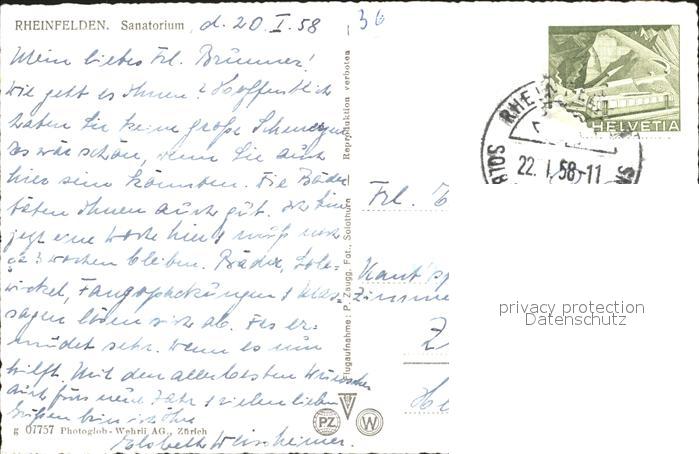 RHEINFELDEN. Sanatorium, d. 20. I. 58
36
Mein liebes Frl. Brunner!
wie geht es Ihnen? Hoffentlich
haben Sie keine große Schmerzen
es wär schön, wenn Sie auch
hier sein könnten. Die Bäder
täten Ihnen auch gut. Ich bin
jetzt eine Woche hier & muß noch
ca 3 wochen bleiben. Bäder, Sole-
wickel, Fangopackungen &
sagen lösen sich ab. Es er-
müdet sehr. wenn es nur
hilft. Mit den allerbesten Wünschen
auch fürs neue Jahr & vielen lieben
Grüßen bin ich Ihre
Elsbeth
g 07757 Photoglob-Wehrli AG., Zürich
Flugaufnahme: P. Zaugg, Fot., Solothurn
Reproduktion verboten
PZ
W
HELVETIA
RHEINFELDEN
22. I. 58-11
SOLB
Frl.
Kant. sp
Zimme
Z
privacy protection
Datenschutz